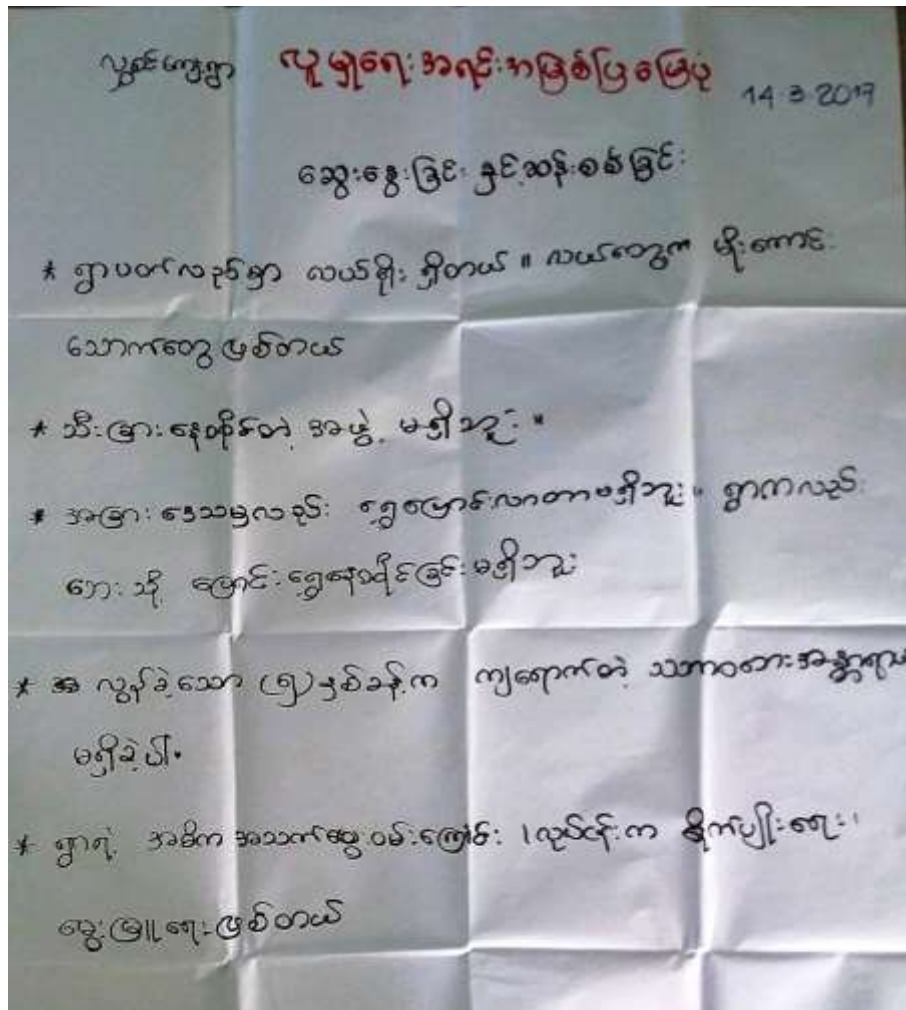 လွှစင်ကျေးရွာ လူမှုရေးအရင်းအမြစ်ပြမြေပုံ 14.3.2017
ဆွေးနွေးခြင်း နှင့်ဆန်းစစ်ခြင်း
* ရွာပတ်လည်မှာ လယ်ရှိုး ရှိတယ်။ လယ်တွေက မိုးကောင်း
သောက်တွေ ဖြစ်တယ်
* သီးခြားနေထိုင်တဲ့ အဖွဲ့ မရှိဘူး။
* အခြားဒေသမှလည်း ရွှေ့ပြောင်းလာတာမရှိဘူး။ ရွာကလည်း
ဘေးသို့ ပြောင်းရွှေ့နေထိုင်ခြင်းမရှိဘူး
* လွန်ခဲ့သော (၅)နှစ်ခန့်က ကျရောက်တဲ့ သဘာဝဘေးအန္တရာယ်
မရှိခဲ့ပါ။
* ရွာရဲ့ အဓိက အသက်မွေးဝမ်းကြောင်း ၊လုပ်ငန်းက စိုက်ပျိုးရေး၊
မွေးမြူရေးဖြစ်တယ်